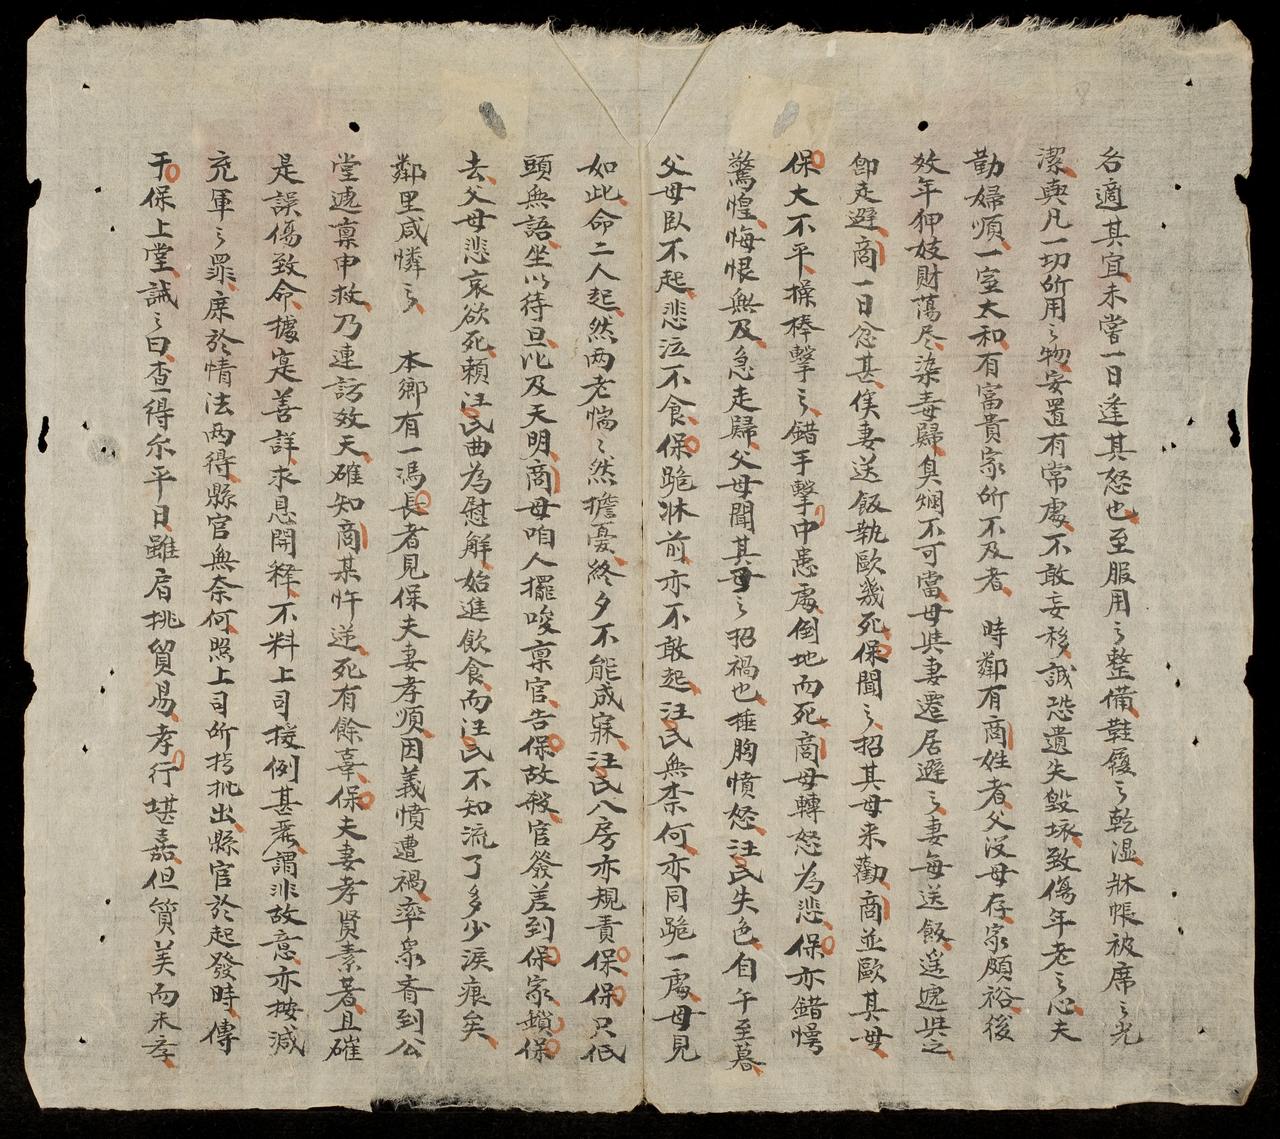 各適其宜未嘗一日逢其怒也至服用之整備鞋履之乾湿牀帳被席之光
潔與凡一切所用之物安置有常處不敢妄移誠恐遺失毀坏致傷年老之心夫
勸婦順一室太和有富貴家所不及者　時鄰有商姓者父没母存家頗裕後
效年狎妓財蕩尽染毒歸臭爛不可當母與妻遷居避之妻每送飯遥遞與之
即走避商一日忿甚俟妻送飯執毆幾死保聞之招其母来勸商並毆其母
保大不平操棒擊之錯手擊中患處倒地而死商母轉怒為悲保亦錯愕
驚惶悔恨無及急走歸父母聞其母之招禍也捶胸憤怒汪氏失色自午至暮
父母臥不起悲泣不食保跪牀前亦不敢起汪氏無柰何亦同跪一處母見
如此命二人起然两老惴之然擔憂終夕不能成寐汪氏入房亦規責保保只低
頭無語坐以待旦比及天明商母咱人攛唆禀官告保故殺官發差到保家鎖保
去父母悲哀欲死賴汪氏曲為慰解始進飲食而汪氏不知流了多少涙痕矣
鄰里咸憐之　本鄉有一馮長者見保夫妻孝順因義憤遭禍率衆齊到公
堂遞禀申救乃連訪效天確知商某忤逆死有餘辜保夫妻孝賢素著且確
是誤傷致命據寔善詳求恩開釋不料上司援例甚嚴謂非故意亦按減
充軍之罪庶於情法两得縣官無奈何照上司所拟批出縣官於起發時傳
于保上堂誡之曰查得尔平日雖肩挑貿易孝行堪嘉但質美而未孝